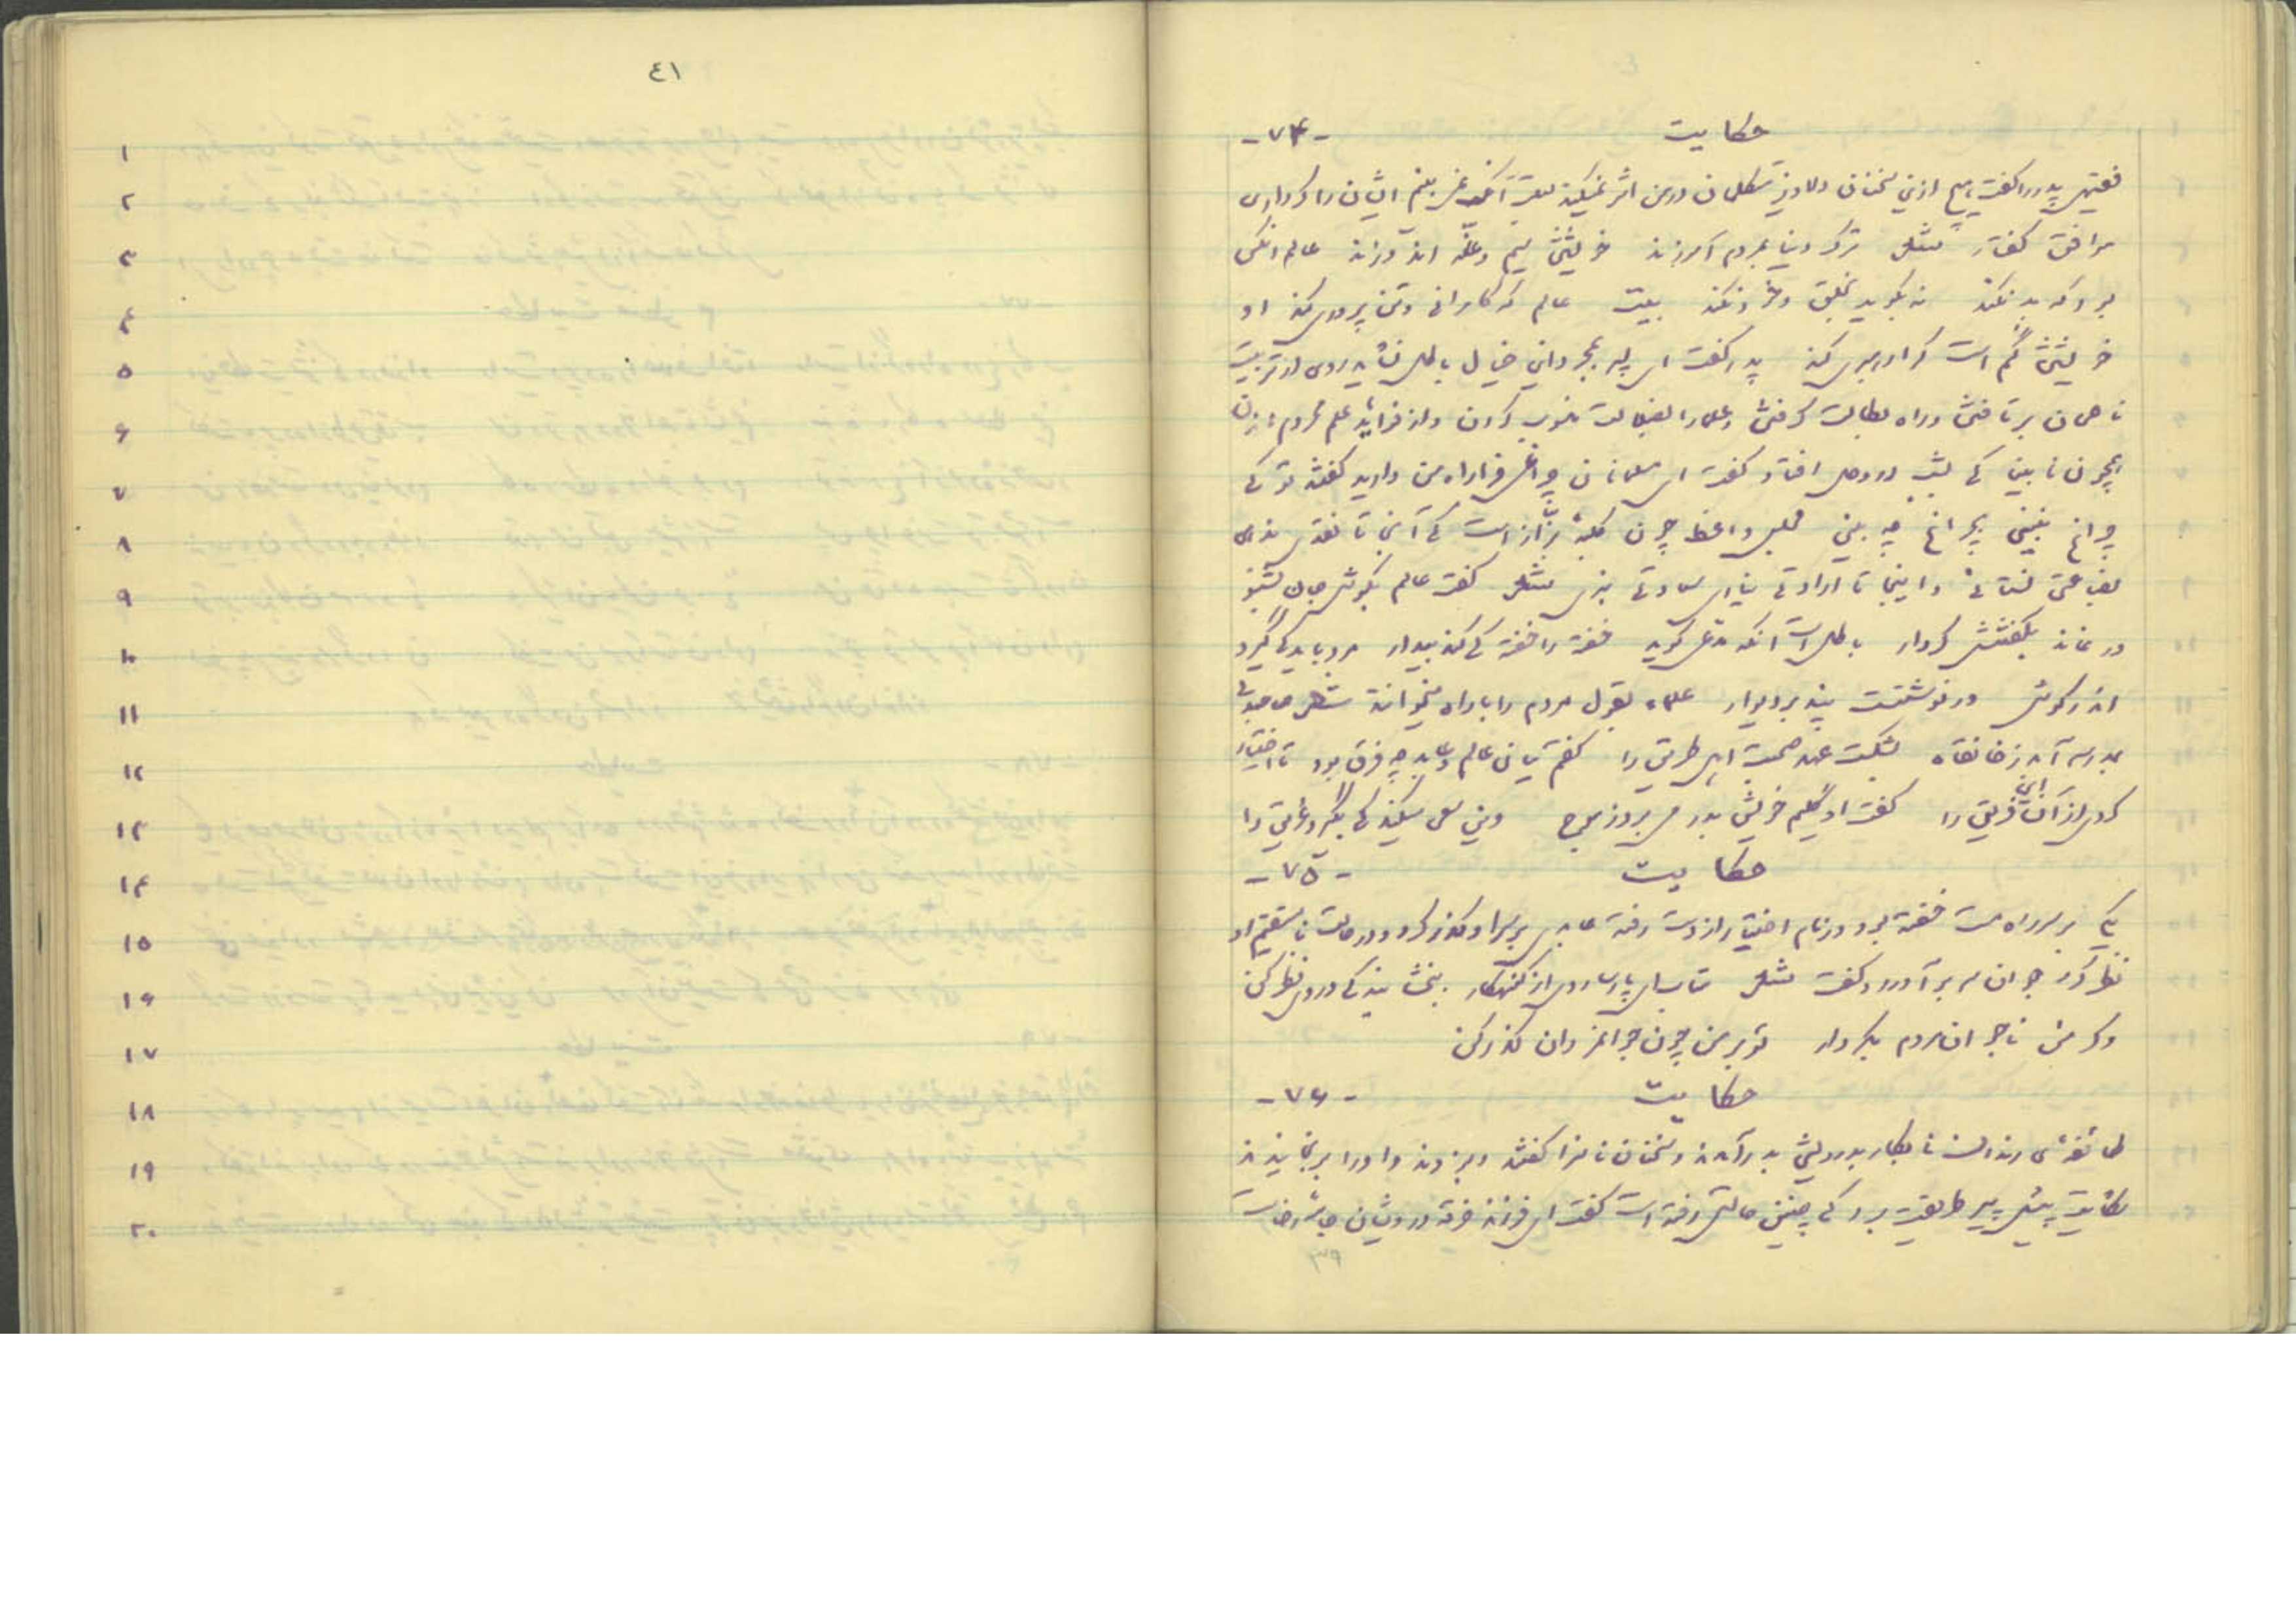 حکایت -۷۴-
فقیهی پدر را گفت هیچ ازین سخنان دلاویز متکلمان در من اثر نمیکند بعلت آنکه نمی بینم ایشان را کرداری
موافق گفتار مثنوی ترک دنیا بمردم آموزند خویشتن سیم و غلّه اندوزند عالم آنکس
بود که بد نکند نه بگوید بخلق و خود نکند بیت عالم که کامرانی و تن پروری کند او
خویشتن گم است کرا رهبری کند پدر گفت ای پسر بمجرد این خیال باطل نشاید روی از تربیت
ناصحان برتافتن و راه بطالت گرفتن و علما را بضلالت منسوب کردن و از فواید علم محروم
همچون نابینی که شب در وحل افتاد گفت ای مسلمانان چراغی فرا راه من دارید گفتند تو که
چراغ نبینی بچراغ چه بینی مجلس واعظ چون کلبهٔ بزّاز است که آنجا تا نقدی ندهی
بضاعتی نستانی و اینجا تا ارادتی نیاری سعادتی نبری گفت عالم بگوش جان بشنو
ور نماند بگفتنش کردار باطل است آنکه مدعی گوید خفته را خفته کی کند بیدار مرد باید که گیرد
اندر گوش ور نوشتست پند بر دیوار صاحبدلی
بمدرسه آمد ز خانقاه بشکست عهد صحبت اهل طریق را گفتم میان عالم و عابد چه فرق بود تا اختیار
کردی از آن این فریق را گفت او گلیم خویش بدر میبرد ز موج وین سعی میکند که بگیرد غریق را
حکایت -۷۵-
یکی بر سر راه مست خفته بود و زمام اختیار از دست رفته عابدی بر سر او گذر کرد و در حالت نامستقیم او
نظر کرد جوان سر برآورد و گفت متاب ای پارسا روی از گنهکار ببخشایندگی در وی نظر کن
وگر من ناجوانمردم بکردار تو بر من چون جوانمردان گذر کن
حکایت -۷۶-
طائفهٔ رندان نابکار بدرویشی بدر آمدند و سخنان ناسزا گفتند و بزدند و او را برنجانیدند
شکایت پیش پیر طریقت برد که چنین حالتی رفته است گفت ای فرزند خرقه درویشان جامه رضاست
۳۹
٤١
۱
۲
۳
۴
۵
۶
۷
۸
۹
۱۰
۱۱
۱۲
۱۳
۱۴
۱۵
۱۶
۱۷
۱۸
۱۹
۲۰